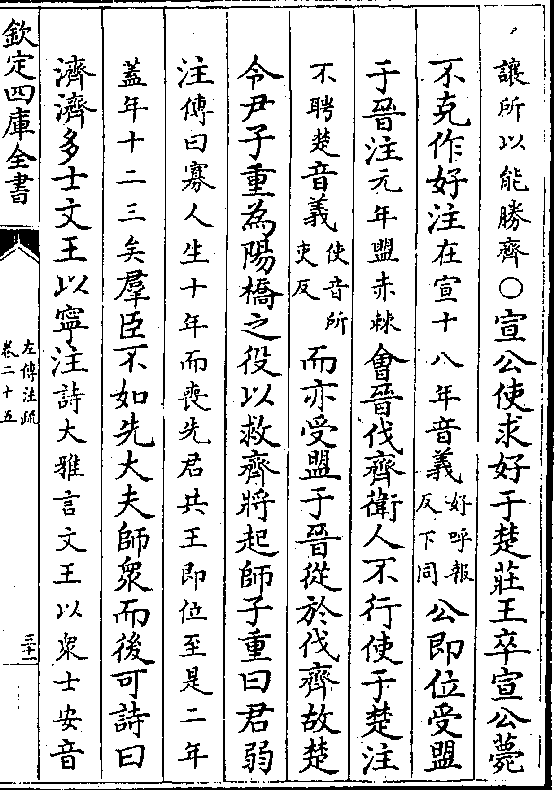 讓所以能勝齊○宣公使求好于楚莊王卒宣公薨
不克作好注在宣十八年音義好呼報反下同公即位受盟
于晉注元年盟赤棘會晉伐齊衛人不行使于楚注
不聘楚音義使音所吏反而亦受盟于晉從於伐齊故楚
令尹子重為陽橋之役以救齊將起師子重曰君弱
注傳曰寡人生十年而喪先君共王即位至是二年
蓋年十二三矣羣臣不如先大夫師衆而後可詩曰
濟濟多士文王以寧注詩大雅言文王以衆士安音
欽定四庫全書
左傳注疏
卷二十五
三十一